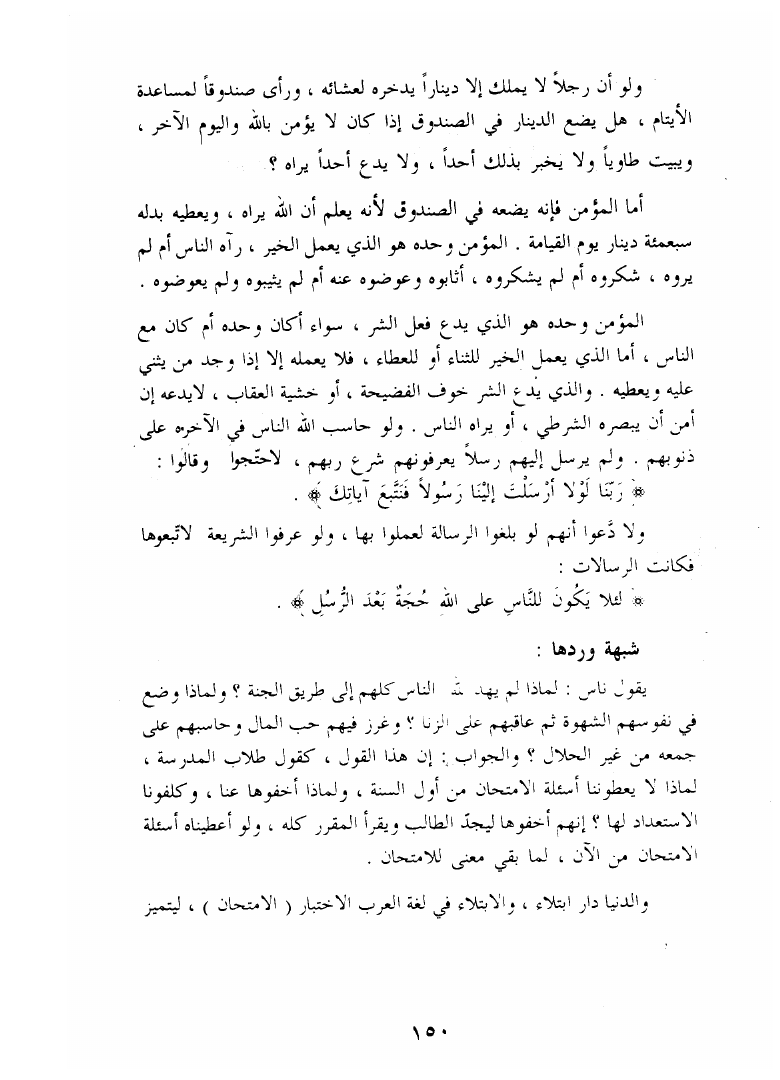 ولو أن رجلاً لا يملك إلا ديناراً يدخره لعشائه ، ورأى صندوقاً لمساعدة
الأيتام ، هل يضع الدينار في الصندوق إذا كان لا يؤمن بالله واليوم الآخر ،
ويبيت طاوياً ولا يخبر بذلك أحداً ، ولا يدع أحداً يراه ؟
أما المؤمن فإنه يضعه في الصندوق لأنه يعلم أن الله يراه ، ويعطيه بدله
سبعمئة دينار يوم القيامة . المؤمن وحده هو الذي يعمل الخير ، رآه الناس أم لم
يروه ، شكروه أم لم يشكروه ، أثابوه وعوضوه عنه أم لم يثيبوه ولم يعوضوه .
المؤمن وحده هو الذي يدع فعل الشر ، سواء أكان وحده أم كان مع
الناس ، أما الذي يعمل الخير للثناء أو للعطاء ، فلا يعمله إلا إذا وجد من يثني
عليه ويعطيه . والذي يدع الشر خوف الفضيحة ، أو خشية العقاب ، لايدعه إن
أمن أن يبصره الشرطي ، أو يراه الناس . ولو حاسب الله الناس في الآخرة على
ذنوبهم . ولم يرسل إليهم رسلاً يعرفونهم شرع ربهم ، لاحتّجوا وقالوا :
﴿ رَبّنَا لَوْلا أرْسَلْتَ إلَيْنَا رَسُولاً فَنَتَّبِعَ آيَاتِكَ ﴾ .
ولا دَّعوا أنهم لو بلغوا الرسالة لعملوا بها ، ولو عرفوا الشريعة لاتّبعوها
فكانت الرسالات :
﴿ لئلا يَكُونَ للنَّاسِ على اللهِ حُجَةٌ بَعْدَ الرُّسُلِ ﴾ .
شبهة وردها :
يقول ناس : لماذا لم يهد الله الناس كلهم إلى طريق الجنة ؟ ولماذا وضع
في نفوسهم الشهوة ثم عاقبهم على الزنا ؟ وغرز فيهم حب المال وحاسبهم على
جمعه من غير الحلال ؟ والجواب : إن هذا القول ، كقول طلاب المدرسة ،
لماذا لا يعطوننا أسئلة الامتحان من أول السنة ، ولماذا أخفوها عنا ، وكلفونا
الاستعداد لها ؟ إنهم أخفوها ليجدّ الطالب ويقرأ المقرر كله ، ولو أعطيناه أسئلة
الامتحان من الآن ، لما بقي معنى للامتحان .
والدنيا دار ابتلاء ، والابتلاء في لغة العرب الاختبار ( الامتحان ) ، ليتميز
١٥٠